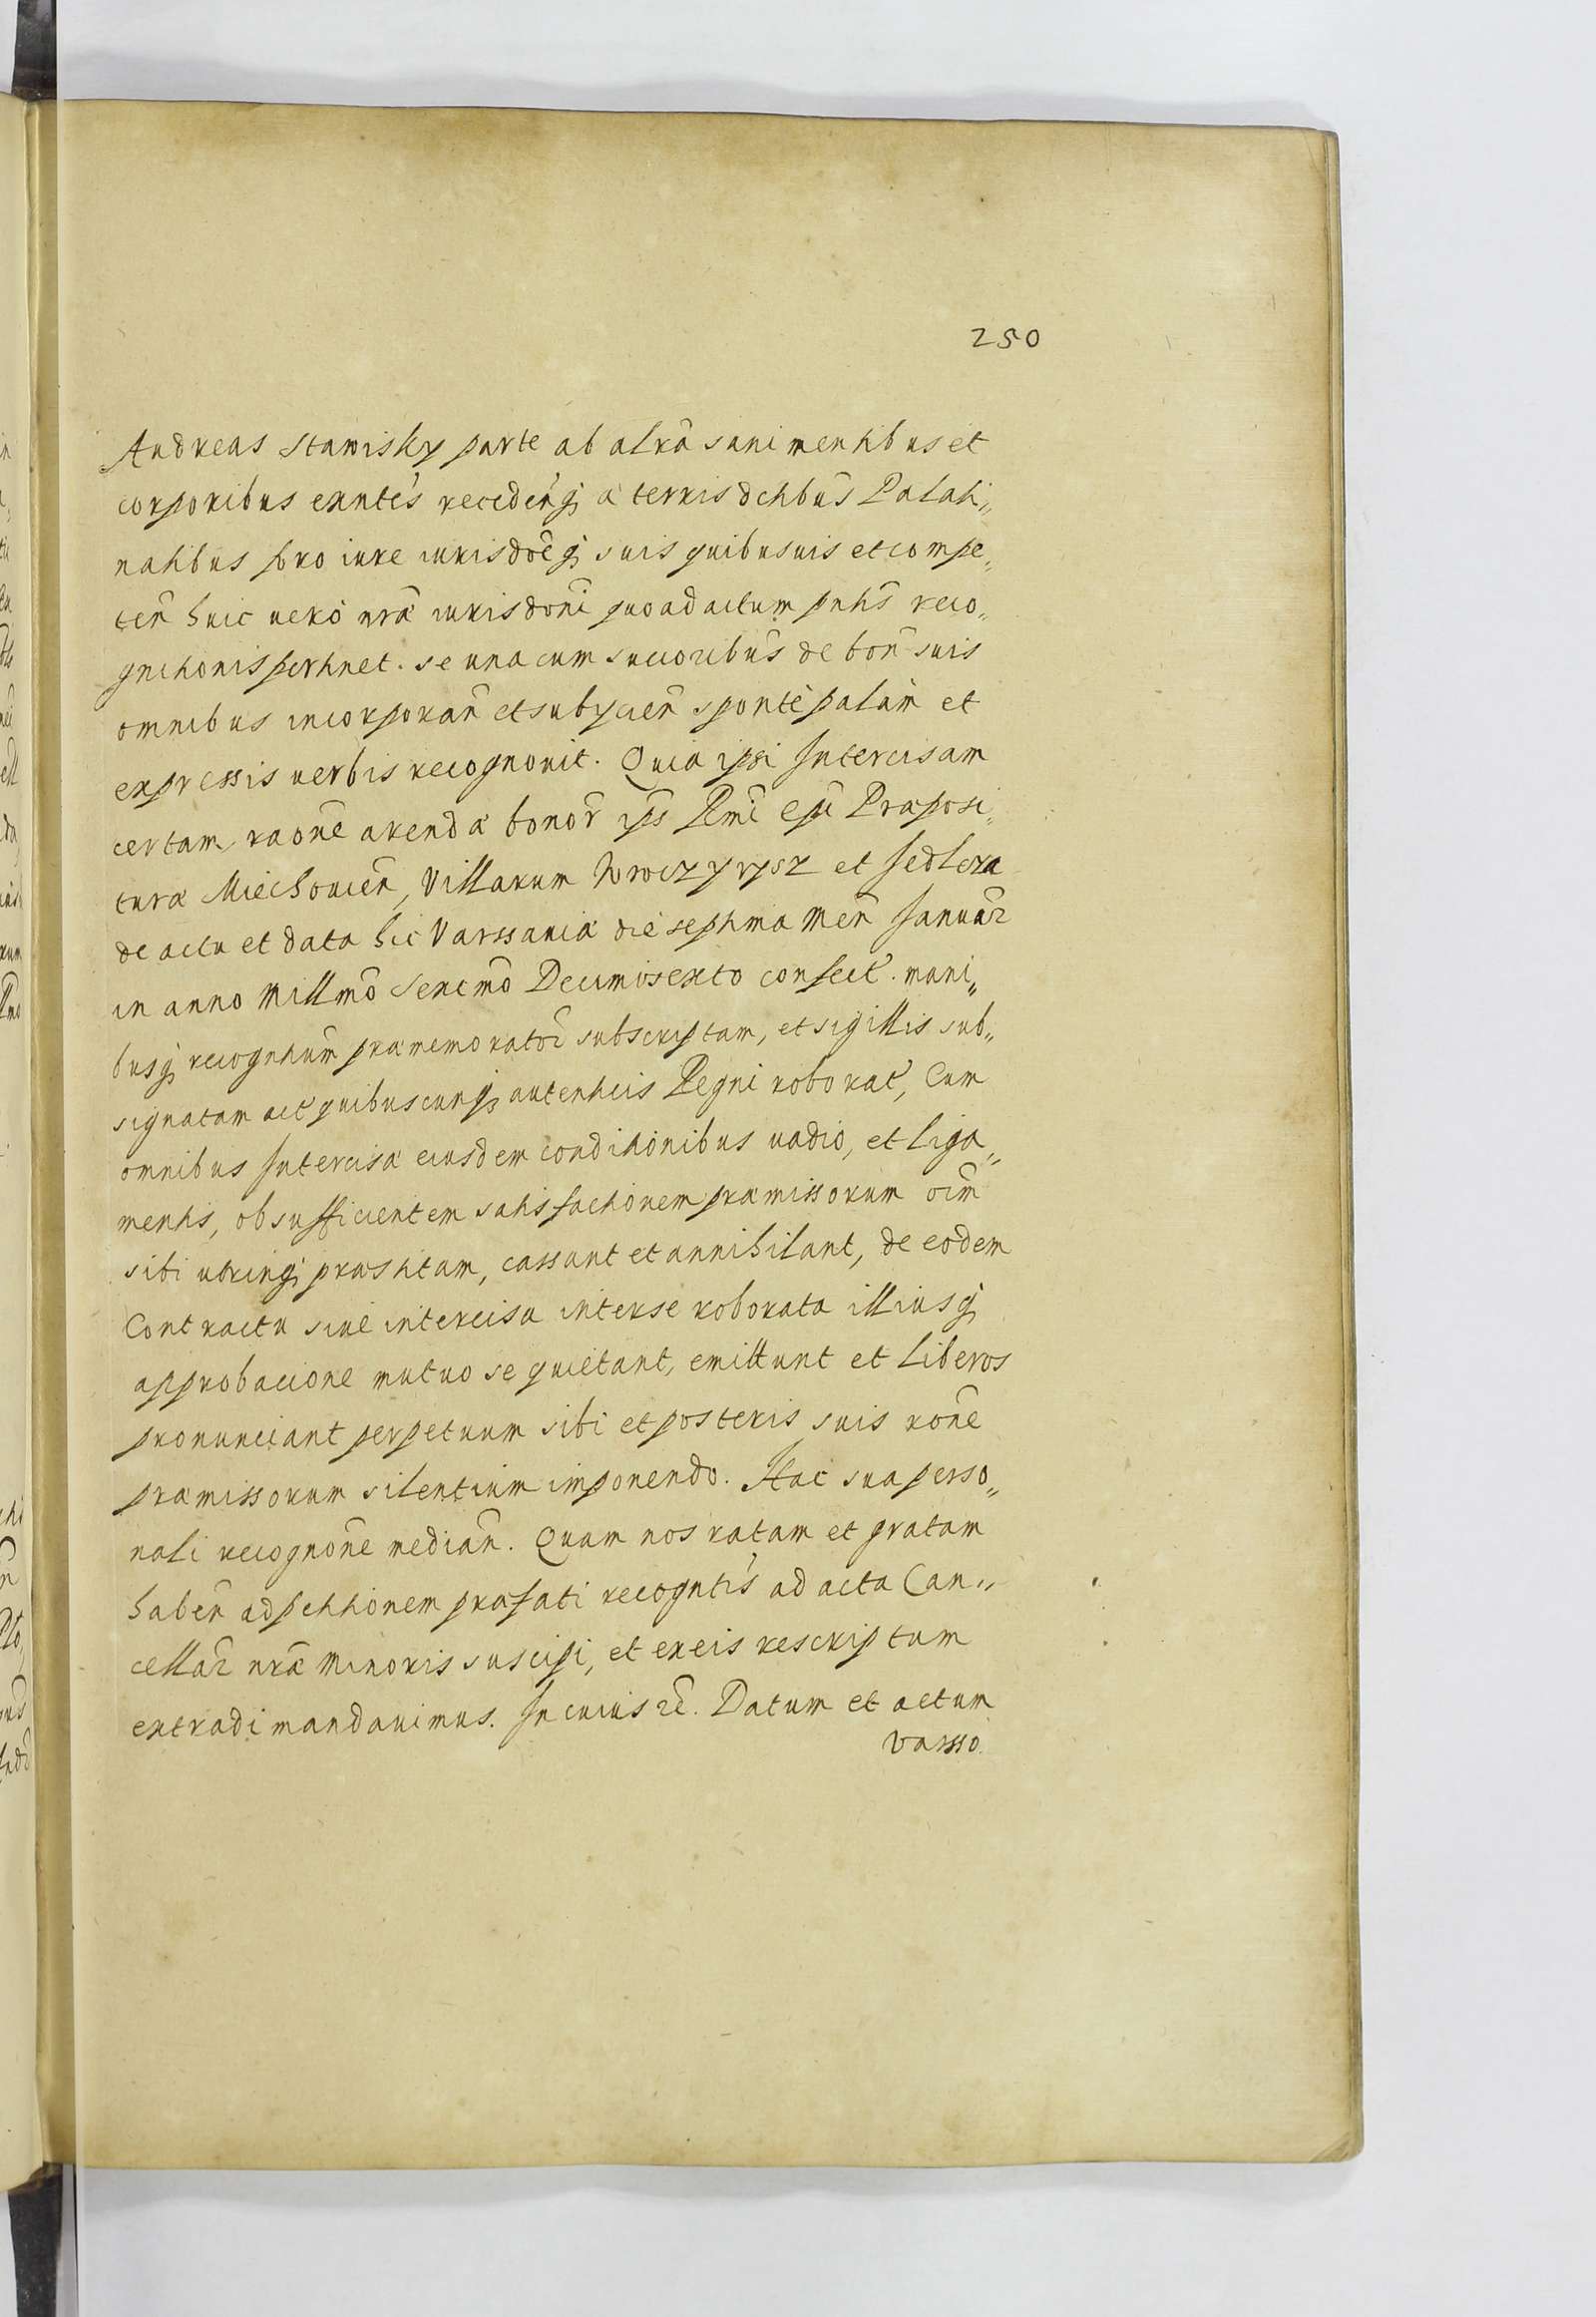 250
Andreas Stawisky parte ab alrã sani mentibus et
corporibus exntẽs recedeñq; a terris dctibũs Palati„
natibus pro iure iurisdõeq; suis quibusuis et compe„
teñ huic uerò nrã iurisdoñi quoad actum pntĩs reco„
gnitionis pertinet. se una cum succoribũs de boñ suis
omnibus incorporañ et subycieñ spontè palàm et
expressis uerbis recognouit. Quia ipsi Intercisam
certam raoñe arendæ bonor̃ ips Rmi Epi Præposi„
turæ Miechouieñ, Villarum Wwczyrysz et Sedlcza
de actu et data hic Varssauiæ die septima Meñ Januar̃
in anno Millmõ Sexcmõ Decimosexto confect̃. mani„
busq; recogntiũm præmemorator̃ subscriptam, et sigillis sub„
signatam act̃ quibuscunq; autenticis Regni roborat̃, Cum
omnibus Intercisæ eiusdem conditionibus uadio, et liga„
mentis, ob sufficientem satisfactionem præmissorum oim̃
sibi utrinq; præstitam, cassant et annihilant, de eodem
Contractu siue intercisa inter se roborata illiusq;
approbacione mutuo se quietant, emittunt et liberos
pronunciant perpetuum sibi et posteris suis roñe
præmissorum silentium imponendo. Hac sua perso„
nali recognoñe mediañ. Quam nos ratam et gratam
habeñ ad petitionem præfati recogntĩs ad acta Can„
cellar̃ nrã Minoris suscipi, et ex eis rescriptum
extradi mandauimus. In cuius rẽ. Datum et actum
Varsso.